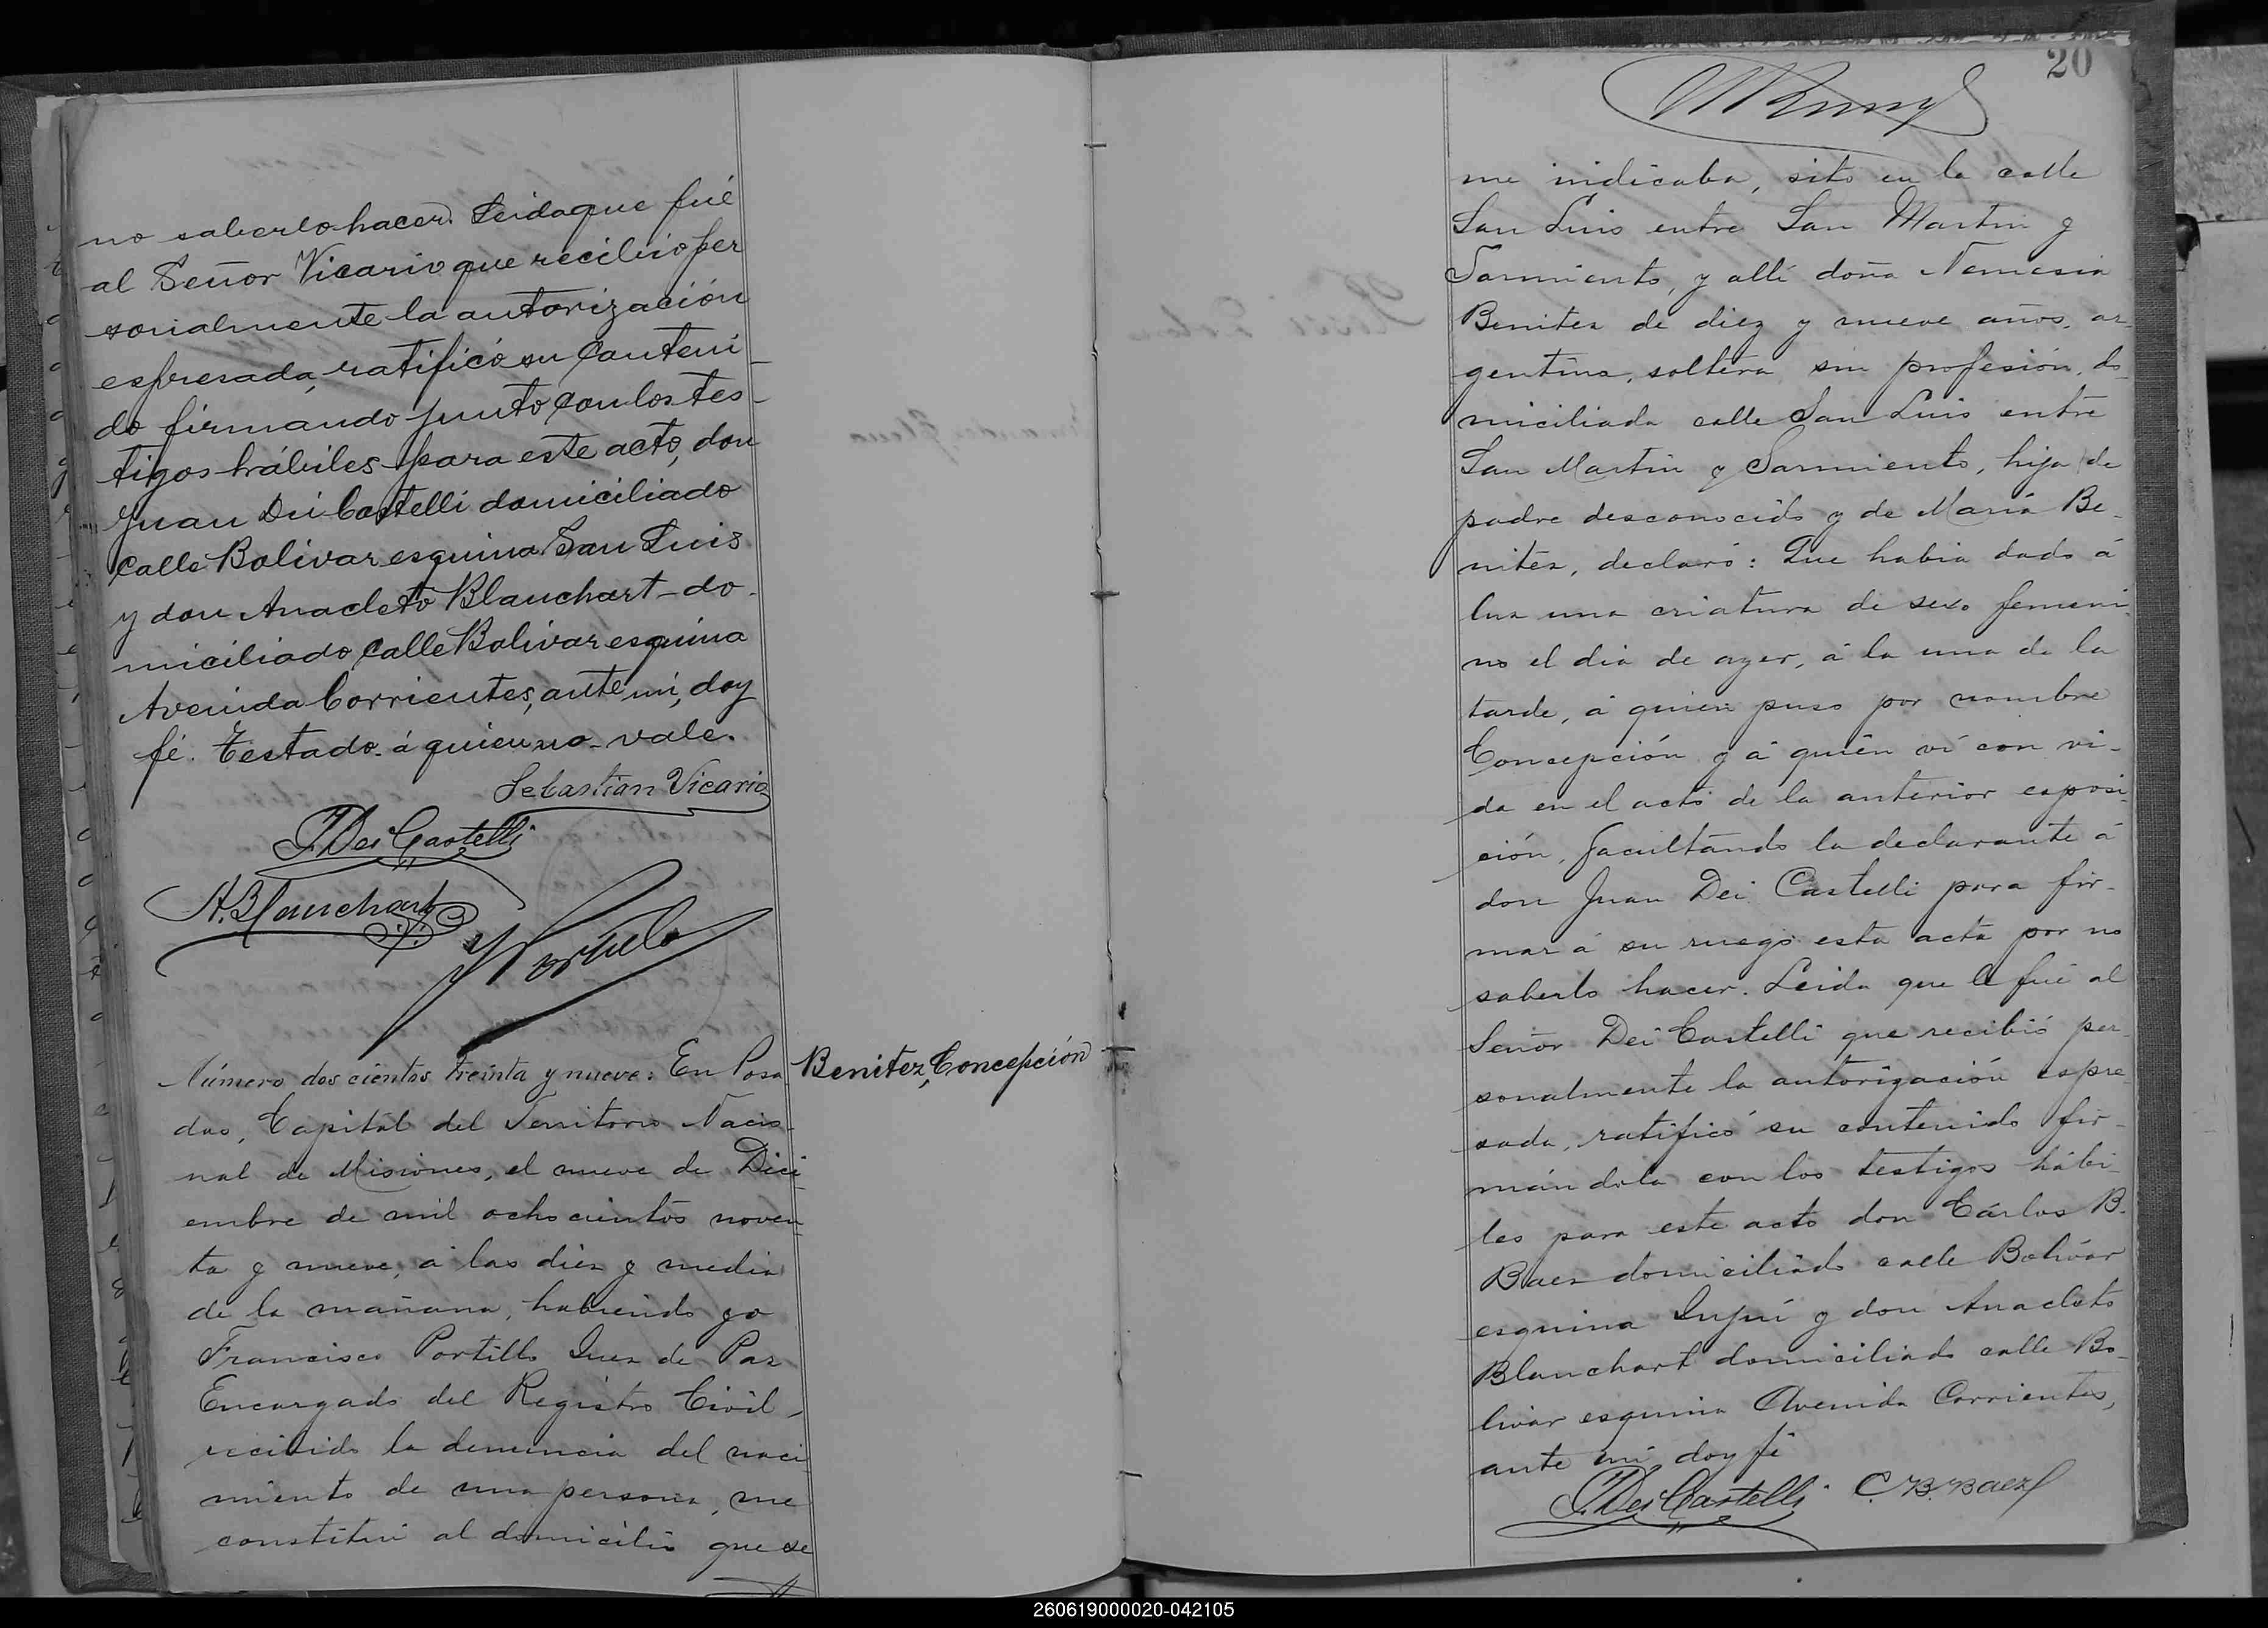 no saberlo hacer. Leida que fué
al Señor Vicario que recibió per
sonalmente la autorización
espresada, ratificó su conteni-
do firmando junto con los tes-
tigos hábiles para este acto, don
Juan Dei Castelli domiciliado
calle Bolivar esquina San Luis
y don Anacleto Blanchart do-
miciliado calle Bolivar esquina
Avenida Corrientes, ante mi, doy
fé. Testado á quien no vale.
Sebastian Vicario
J. Dei Castelli
A. Blanchart
Número dos cientos treinta y nueve: En Posa
das, Capital del Territorio Nacio-
nal de Misiones, el nueve de Dici-
embre de mil ocho cientos noven-
ta y nueve, á las diez y media
de la mañana, habiendo yo
Francisco Portillo Juez de Paz
Encargado del Registro Civil,
recibido la denuncia del naci
miento de una persona, me
constituí al domicilio que se
Benitez, Concepción
20
me indicaba, sito en la calle
San Luis entre San Martin y
Sarmiento, y allí doña Nemesia
Benitez de diez y nueve años, ar-
gentina, soltera sin profesión, do-
miciliada calle San Luis entre
San Martin y Sarmiento, hija de
padre desconocido y de María Be-
nitez, declaró: Que habia dado á
luz una criatura de sexo femeni-
no el dia de ayer, á la una de la
tarde, á quien puso por nombre
Concepción y á quién ví con vi-
da en el acto de la anterior esposi-
ción, facultando la declarante á
don Juan Dei Castelli para fir-
mar á su ruego esta acta por no
saberlo hacer. Leida que le fué al
Señor Dei Castelli que recibió per-
sonalmente la autorización espre-
sada, ratificó su contenido fir-
mándola con los testigos hábi-
les para este acto don Cárlos B.
Baez domiciliado calle Bolívar
esquina Jujuí y don Anacleto
Blanchart domiciliado calle Bo-
livar esquina Avenida Corrientes,
ante mí doy fé
J. Dei Castelli C. B. Baez
260619000020-042105